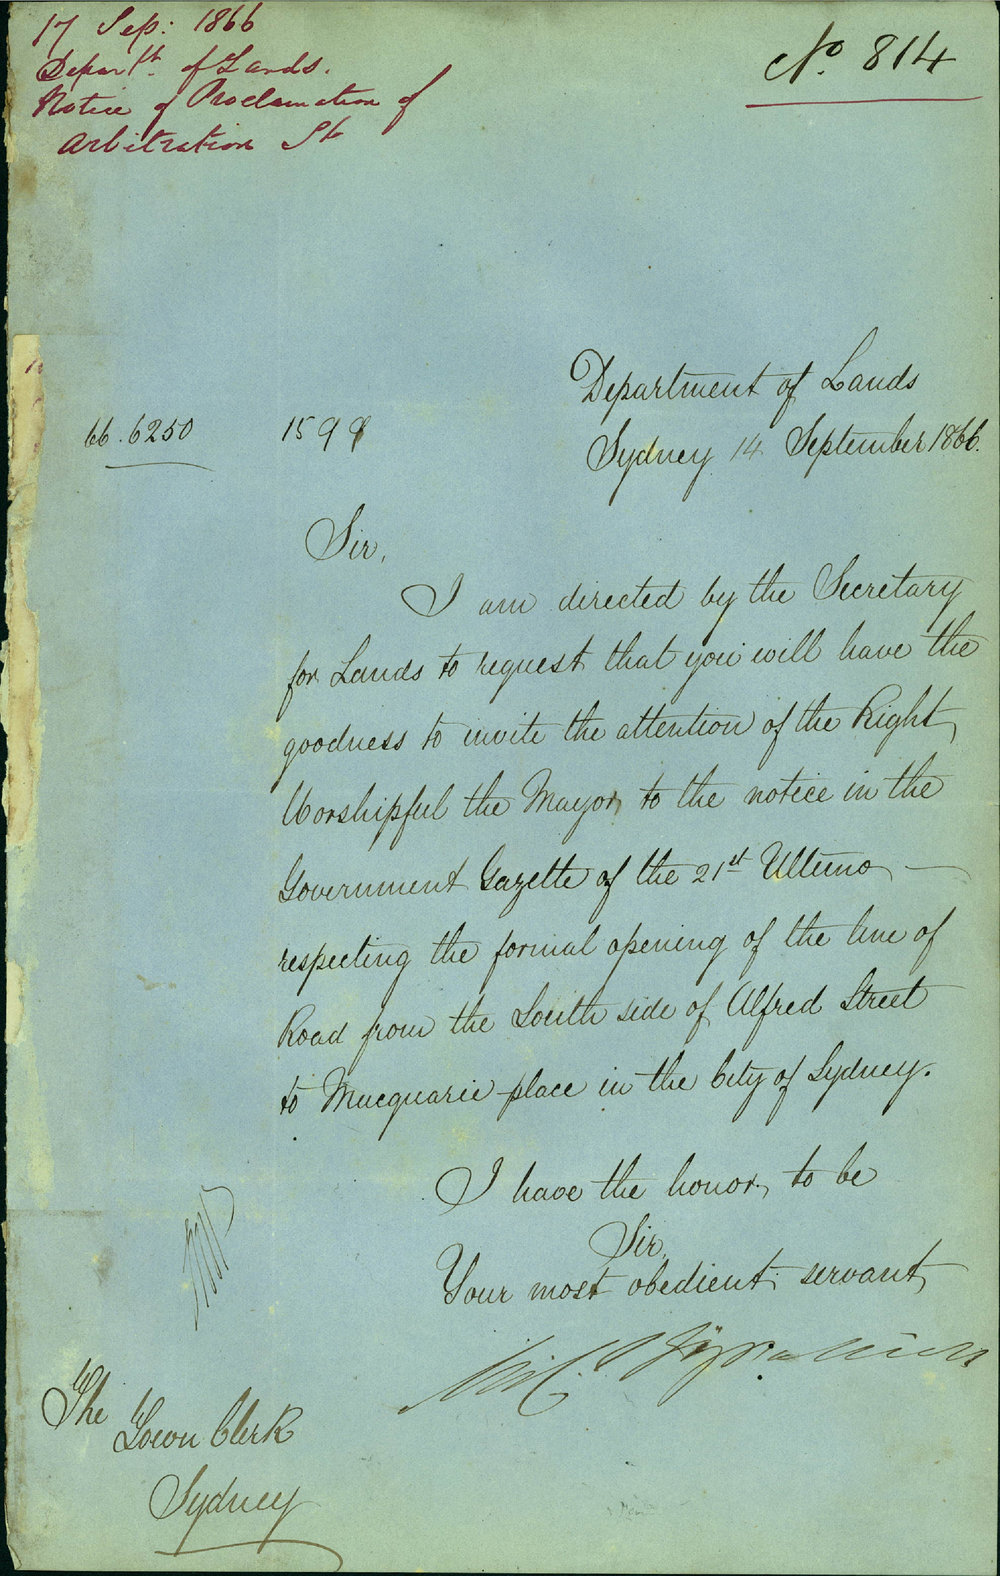 17 Sep: 1866
Departt. of Lands.
Notice of Proclamation of
Arbitration St
No. 814
Department of Lands
66.6250
1599
Sydney 14 September 1866.
Sir,
I am directed by the Secretary
for Lands to request that you will have the
goodness to invite the attention of the Right
Worshipful the Mayor, to the notice in the
Government Gazette of the 21st Ultimo —
respecting the formal opening of the line of
Road from the South side of Alfred Street
to Macquarie place in the City of Sydney.
I have the honor, to be
Sir,
Your most obedient servant
The
Town Clerk
Sydney